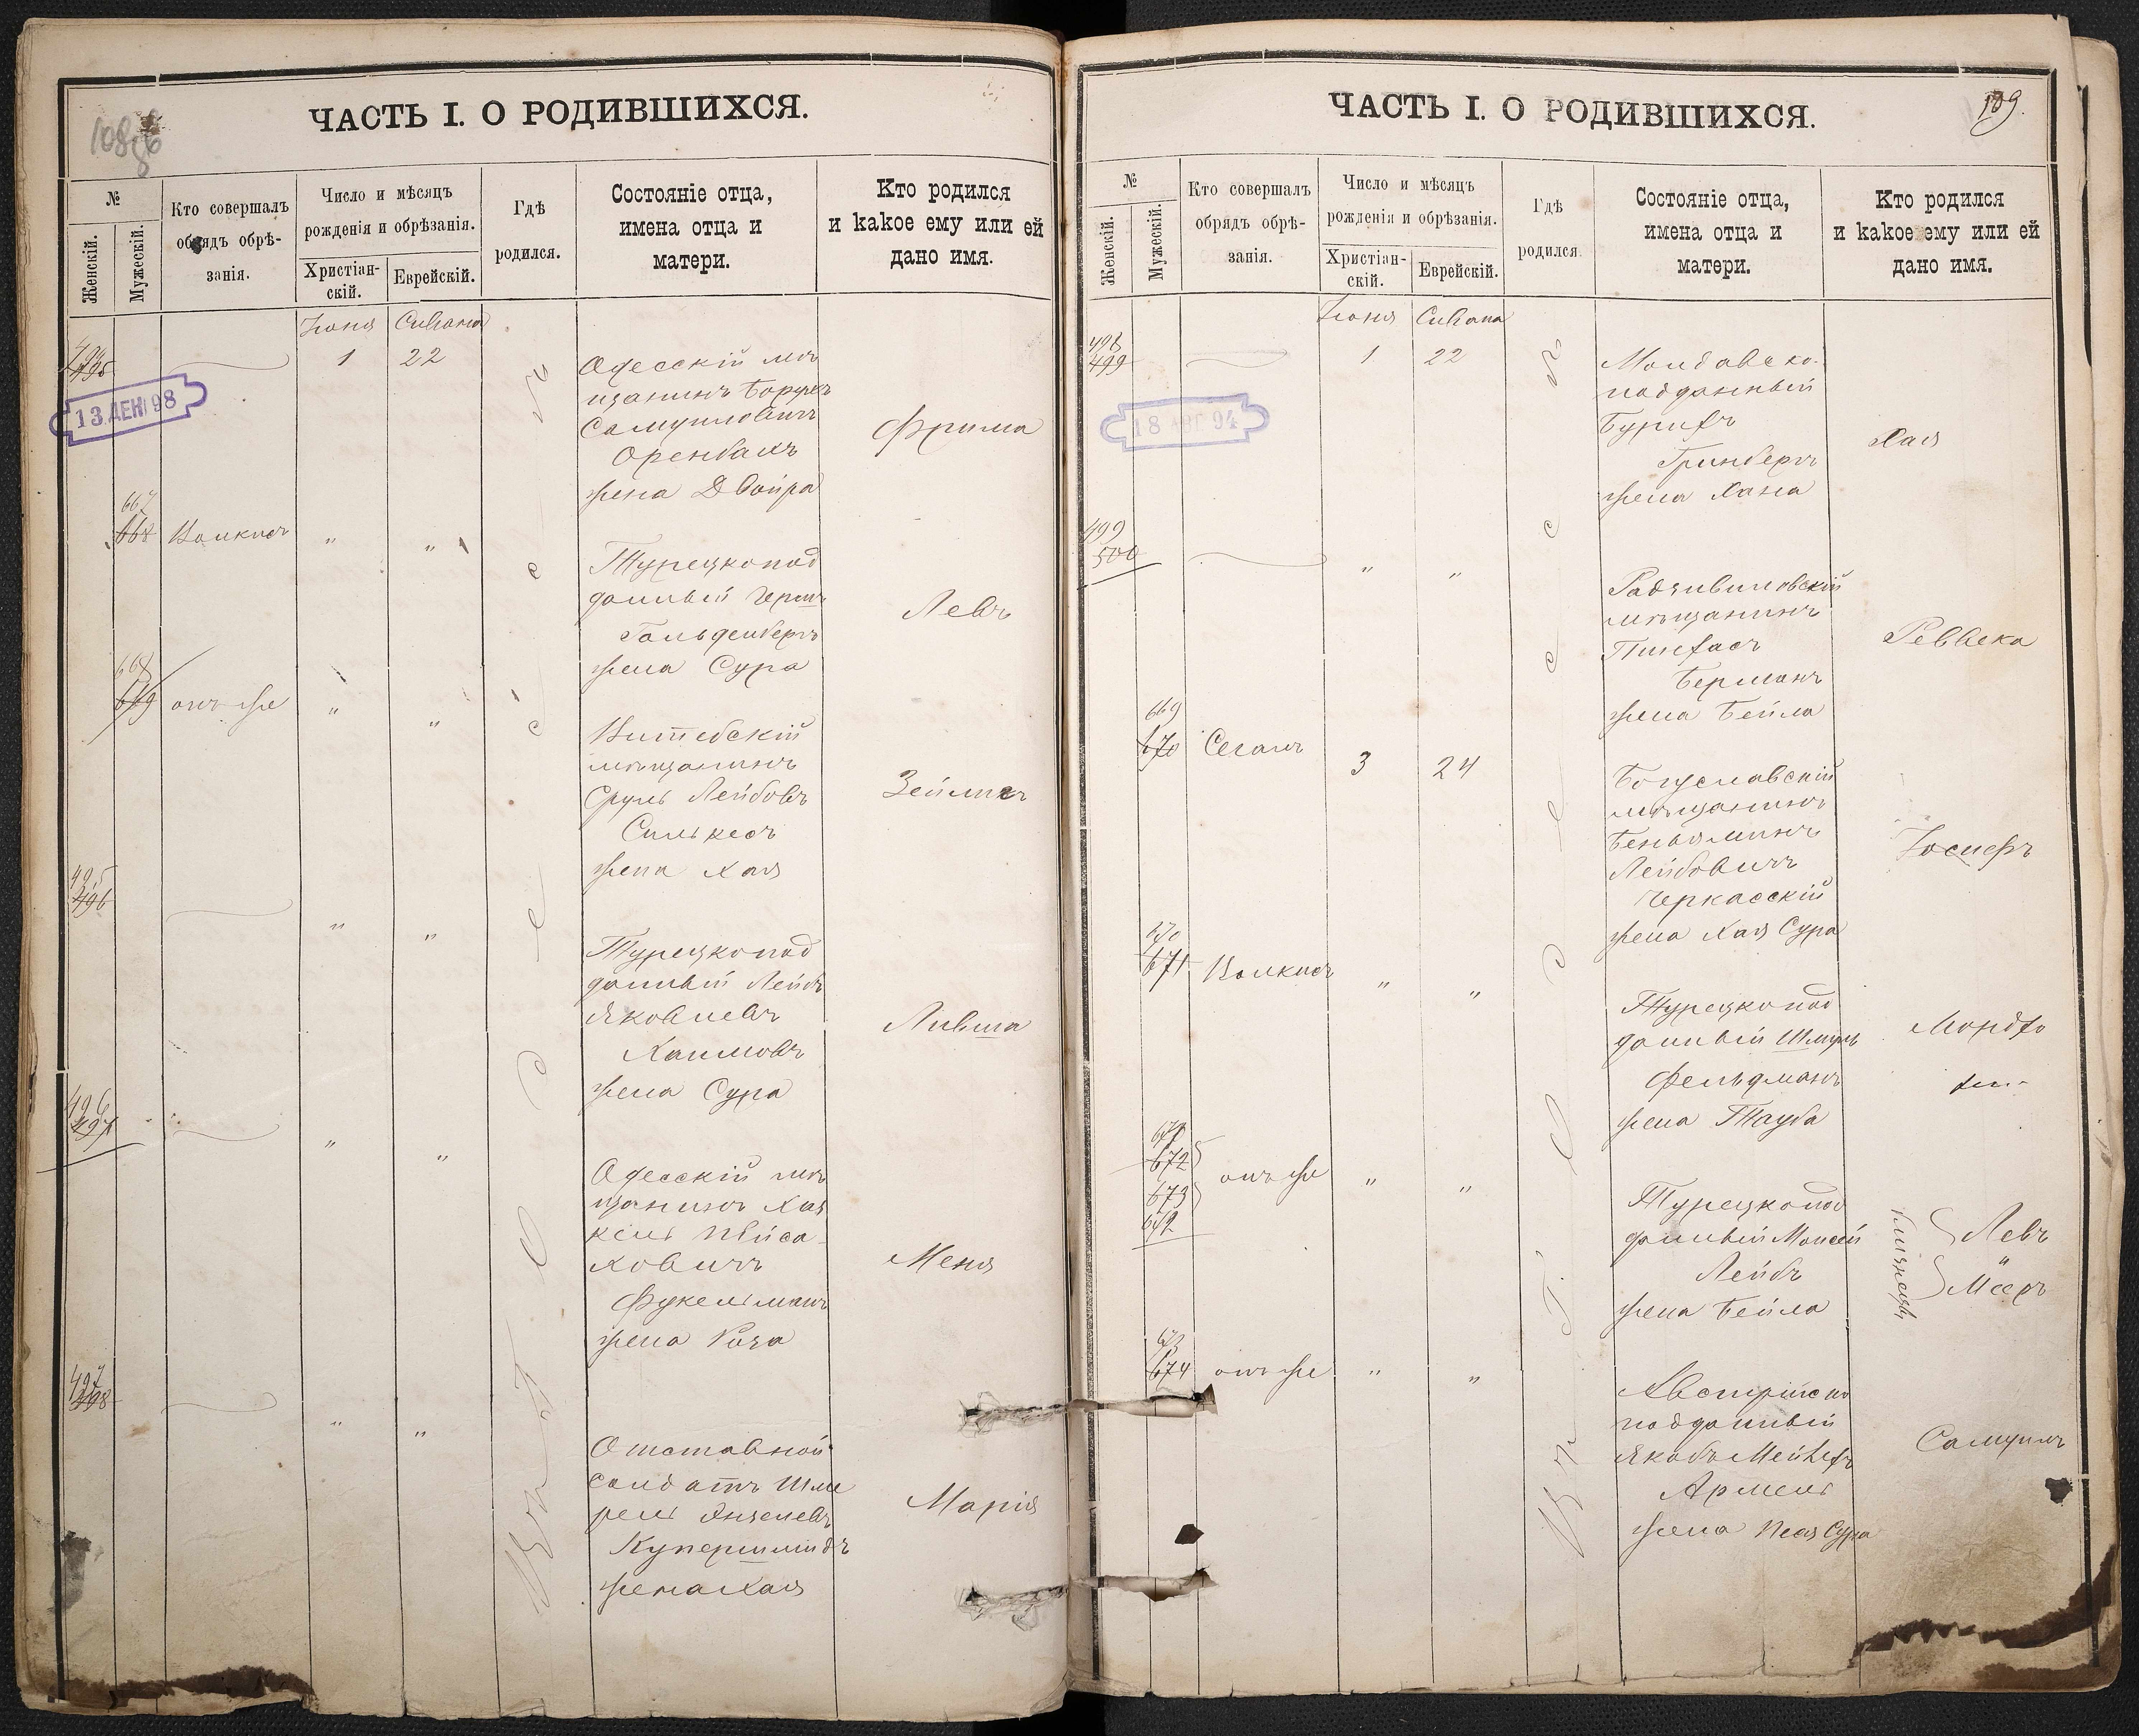 108
ЧАСТЬ I. О РОДИВШИХСЯ.
№
Женскій.
Мужескій.
Кто совершалъ
обрядъ обрѣ-
занія.
Число и мѣсяцъ
рожденія и обрѣзанія.
Христіан-
скій.
Еврейскій.
Гдѣ
родился.
Состояніе отца,
имена отца и
матери.
Кто родился
и какое ему или ей
дано имя.
Іюня Сивана
494
495
1 22
Одесскій мѣ
щанинъ Борухъ
Самуиловичъ
Оренбахъ
жена Двойра
Фрима
13 ДЕК 98
667
668 Волкисъ " "
Турецкопод
данный Герш
Гольденбергъ
жена Сура
Левъ
668
669 онъ же " "
Витебскій
мѣщанинъ
Сруль Лейбовъ
Силькесъ
жена Хая
Зейликъ
495
496 " "
Турецкопод
данный Лейбъ
Яковлевъ
Хаимовъ
жена Сура
Ливша
496
497 " "
Одесскій мѣ
щанинъ Хас
кель Пейса-
ховичъ
Фукельманъ
жена Роза
Меня
497
498 " "
Отставной
солдатъ Шме
рель Янкелевъ
Купершмидъ
жена Хая
Марія
Въ Одессѣ
109.
ЧАСТЬ I. О РОДИВШИХСЯ.
№
Женскій.
Мужескій.
Кто совершалъ
обрядъ обрѣ-
занія.
Число и мѣсяцъ
рожденія и обрѣзанія.
Христіан-
скій.
Еврейскій.
Гдѣ
родился.
Состояніе отца,
имена отца и
матери.
Кто родился
и какое ему или ей
дано имя.
Іюня Сивана
498
499
1 22
Молдавско-
подданный
Бурихъ
Гринбергъ
жена Хана
Хая
18 АВГ 94
499
500 " "
Радзивиловскій
мѣщанинъ
Пинхасъ
Берманъ
жена Бейла
Реввека
669
670 Сегалъ 3 24
Богуславскій
мѣщанинъ
Беньяминъ
Лейбовичъ
Черкасскій
жена Хая Сура
Іосифъ
670
671 Волкисъ " "
Турецкопод
данный Шмуль
Фельдманъ
жена Тауба
Мордхо
671
672
673
672
онъ же " "
Турецкопод
данный Моисей
Лейбъ
жена Бейла
близнецы
Левъ
и
Мееръ
673
674 онъ же " "
Австрійско
подданный
Якобъ Мейлехъ
Армель
жена Песя Сура
Самуилъ
Въ Одессѣ